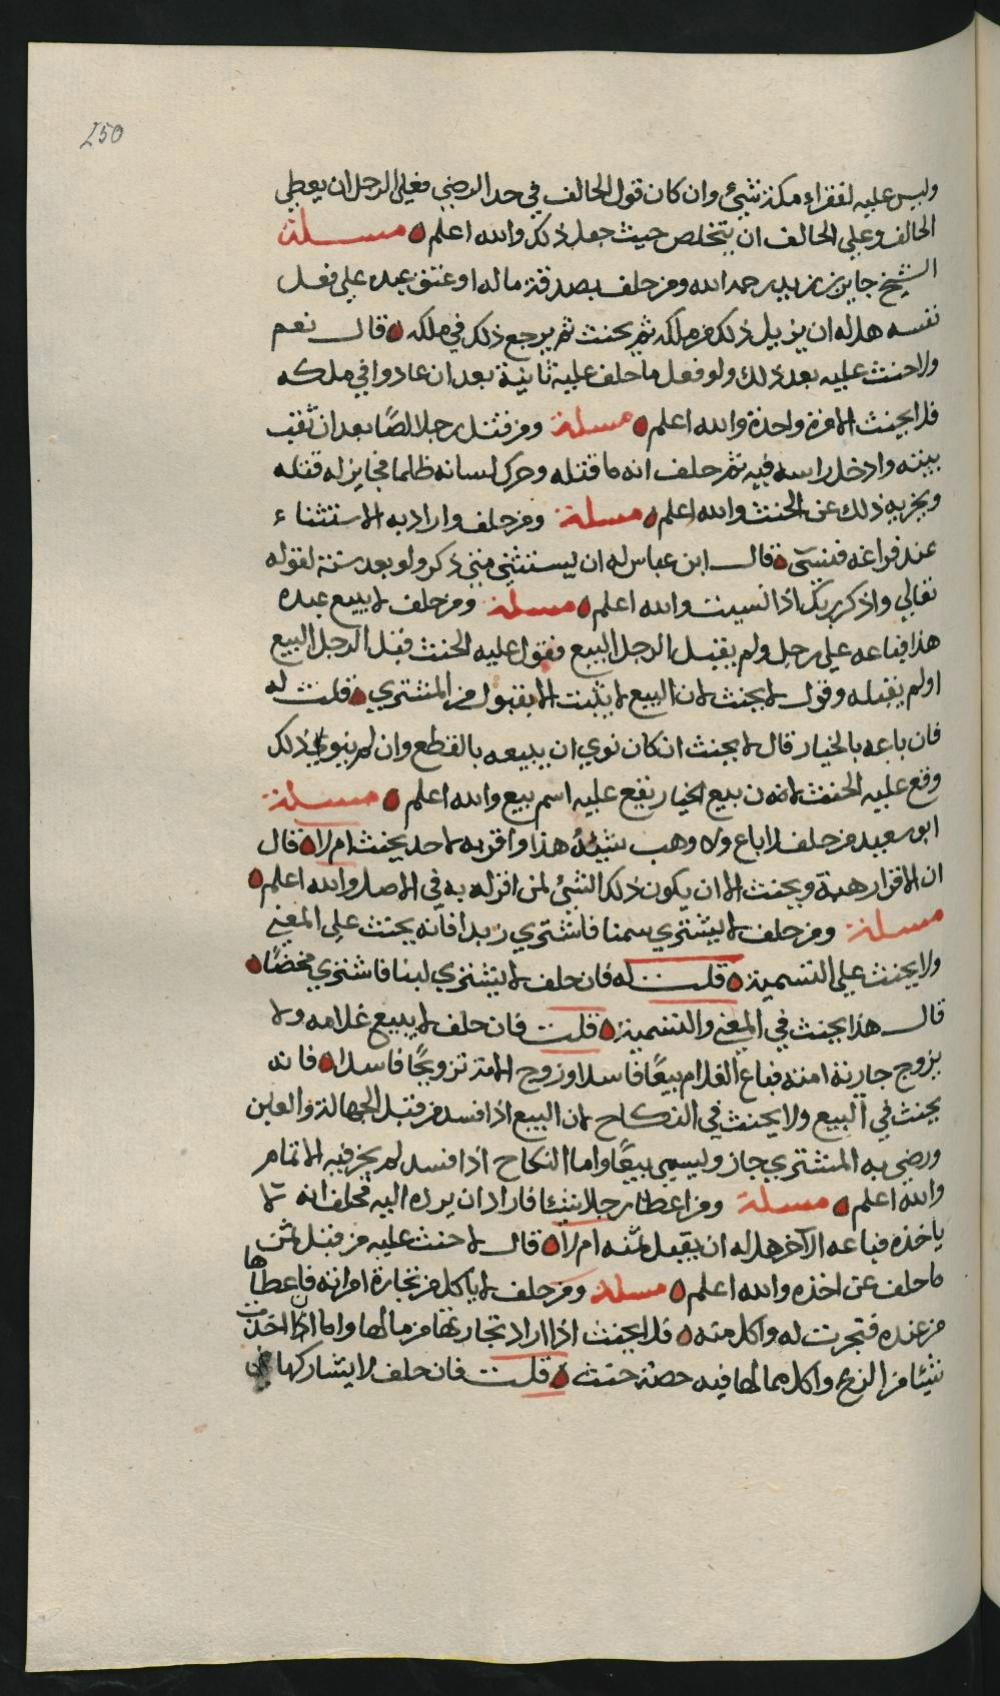 250
وليس عليه لفقراء مكة شيئ وان كان قول الحالف في حد الرضى فعلى الرجل ان يعطي
الحالف وعلى الحالف ان يتخلص حيث جعل ذلك والله اعلم مسئلة
الشيخ جابر بن زيد رحمه الله ومن حلف بصدقة ماله او عتق عبده على فعل
نفسه هل له ان يزيل ذلك من ملكه ثم يحنث ثم يرجع ذلك في ملكه قال نعم
ولا حنث عليه بعد ذلك ولو فعل ما حلف عليه ثانية بعد ان عادوا في ملكه
فلا يحنث الا مرة واحدة والله اعلم مسئلة ومن قتل رجلا لصًا بعد ان ثقب
بيته وادخل راسه فيه ثم حلف انه ما قتله وحرك لسانه ظلما فجايز له قتله
ويجزيه ذلك عن الحنث والله اعلم مسئلة ومن حلف واراد به الاستثناء
عند فراغه فنسي قال ابن عباس له ان يستثني متى ذكر ولو بعد سنة لقوله
تعالى واذكر ربك اذا نسيت والله اعلم مسئلة ومن حلف لا يبيع عبده
هذا فباعه على رجل ولم يقبل الرجل البيع فقول عليه الحنث قبل الرجل البيع
او لم يقبله وقول لا يحنث لان البيع لا يثبت الا بقبول من المشتري قلت له
فان باعه بالخيار قال لا يحنث ان كان نوي ان يبيعه بالقطع وان لم ينوي ذلك
وقع عليه الحنث لان بيع الخيار يقع عليه اسم بيع والله اعلم مسئلة
ابو سعيد من حلف لا باع ولا وهب شيئه هذا واقر به لاحد يحنث ام لا قال
ان الاقرار هبة ويحنث الا ان يكون ذلك الشئ لمن اقر له به في الاصل والله اعلم
مسئلة ومن حلف لا يشتري سمنا فاشتري زبدا فانه يحنث على المعنى
ولا يحنث على التسمية قلت له فان حلف لا يشتري لبنا فاشتري مخضًا
قال هذا يحنث في المعنى والتسمية قلت فان حلف لا يبيع غلامه ولا
يزوج جارية امته فباع الغلام بيعًا فاسدا وزوج الامة تزويجًا فاسدا فانه
يحنث في البيع ولا يحنث في النكاح لان البيع اذا فسد من قبل الجهالة والغبن
ورضي به المشتري جاز ويسمي بيعًا واما النكاح اذا فسد لم يجز فيه الاتمام
والله اعلم مسئلة ومن اعطا رجلا شيئا فاراد ان يرده اليه فحلف انه لا
ياخذه فباعه الآخر هل له ان يقبل ثمنه ام لا قال لا حنث عليه من قبل ثمن
ما حلف عن اخذه والله اعلم مسئلة ومن حلف لا ياكل من تجارة امراته فاعطاها
من عنده فتجرت له واكل منه فلا يحنث اذا اراد تجارتها من مالها واما ان اخذت
شيئا من الزرع واكل مما لها فيه حصة حنث قلت فان حلف لا يشاركها في